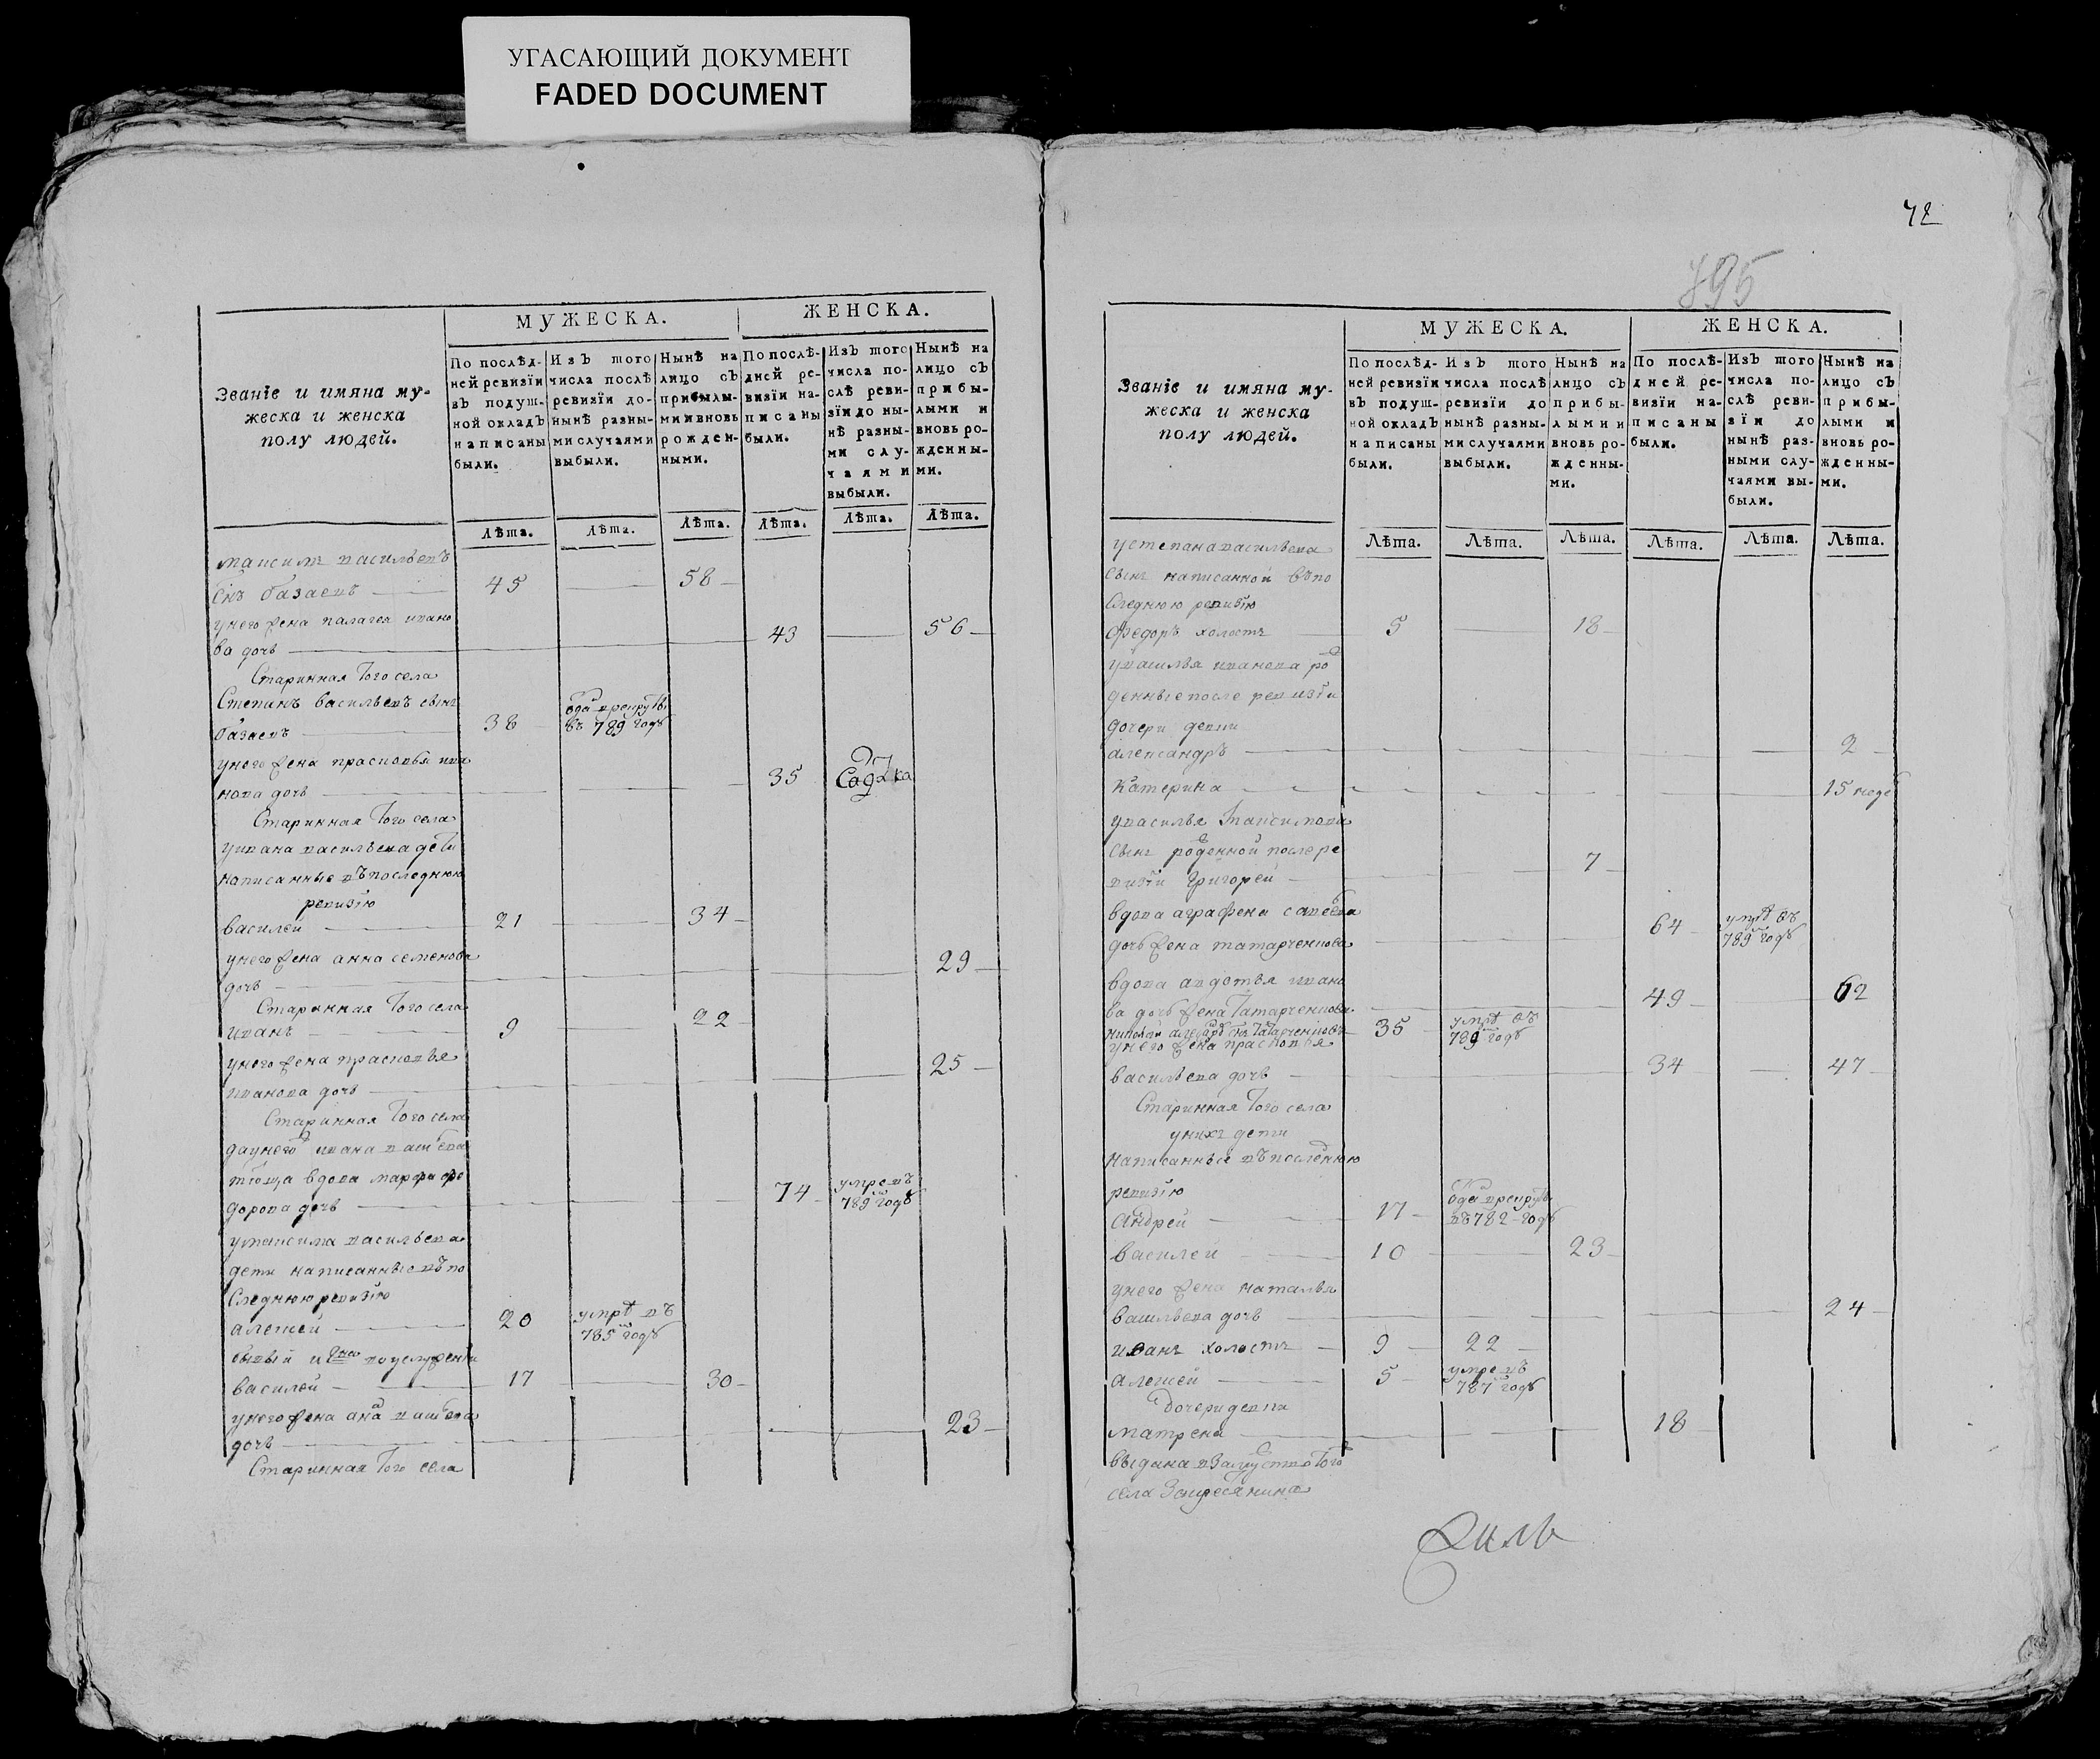 УГАСАЮЩИЙ ДОКУМЕНТ
FADED DOCUMENT
Званїе и имяна му-
жеска и женска
полу людей.
МУЖЕСКА.
ЖЕНСКА.
По послѣд-
ней ревизїи
въ подуш-
ной окладъ
написаны
были.
Изъ того
числа послѣ
ревизїи до-
нынѣ разны-
ми случаями
выбыли.
Нынѣ на
лицо съ
прибылы-
ми и вновь
рожден-
ными.
По послѣ-
дней ре-
визїи на-
писаны
были.
Изъ того
числа по-
слѣ реви-
зїи до ны-
нѣ разны-
ми слу-
чаями
выбыли.
Нынѣ на
лицо съ
прибы-
лыми и
вновь ро-
жденны-
ми.
Лѣта. Лѣта. Лѣта. Лѣта. Лѣта. Лѣта.
максимъ васильевъ
снъ базаевъ 45 58
унего жена палагея ивано
ва дочь 43 56
Старинная того села
Степанъ васильевъ сынъ
базаевъ 38 отда врекруты въ 789 годѣ
унего жена прасковья ива
нова дочь 35
Старинная того села
уивана васильева дети
написанные въпоследнюю
ревизїю
василей 21 34
унего жена анна семенова
дочь 29
Старинная того села
иванъ 9 22
унего жена прасковья
иванова дочь 25
Старинная того села
даунего ивана васильева
теща вдова марфа фе
дорова дочь 74 умре въ 789 годѣ
умаксима васильева
дети написанные въпо
следнюю ревизїю
алексей 20 умре въ 785 годѣ
василей 17 30
унего жена анна васильева
дочь 23
Старинная того села
72
795
Званїе и имяна му-
жеска и женска
полу людей.
МУЖЕСКА.
ЖЕНСКА.
По послѣд-
ней ревизїи
въ подуш-
ной окладъ
написаны
были.
Изъ того
числа послѣ
ревизїи до
нынѣ разны-
ми случаями
выбыли.
Нынѣ на
лицо съ
прибы-
лыми и
вновь ро-
жденны-
ми.
По послѣ-
дней ре-
визїи на-
писаны
были.
Изъ того
числа по-
слѣ реви-
зїи до
нынѣ раз-
ными слу-
чаями вы-
были.
Нынѣ на
лицо съ
прибы-
лыми и
вновь ро-
жденны-
ми.
Лѣта. Лѣта. Лѣта. Лѣта. Лѣта. Лѣта.
устепана васильева
сынъ написанной въпо
следнюю ревизїю
Федоръ холостъ 5 18
увасилья иванова рож
денные после ревизїи
дочери девки
александръ 2
Катерина 15 неде
увасилья максимова
сынъ рожденной после ре
визїи Григорей 7
вдова аграфена савесва
дочь жена татарченкова 64 умре въ 789 годѣ
вдова авдотья ивано
ва дочь жена татарченкова 49 62
татарченковъ 35 умре въ 789 годѣ
унего жена прасковья
васильева дочь 34 47
Старинная того села
унихъ дети
написанные въпоследнюю
ревизїю
андрей 17 отда врекруты въ 782 годѣ
василей 10 23
унего жена наталья
васильева дочь 24
иванъ холостъ 9 22
алексей 5 умре въ 787 годѣ
дочери девки
матрена 18
выдана взамужство того
села